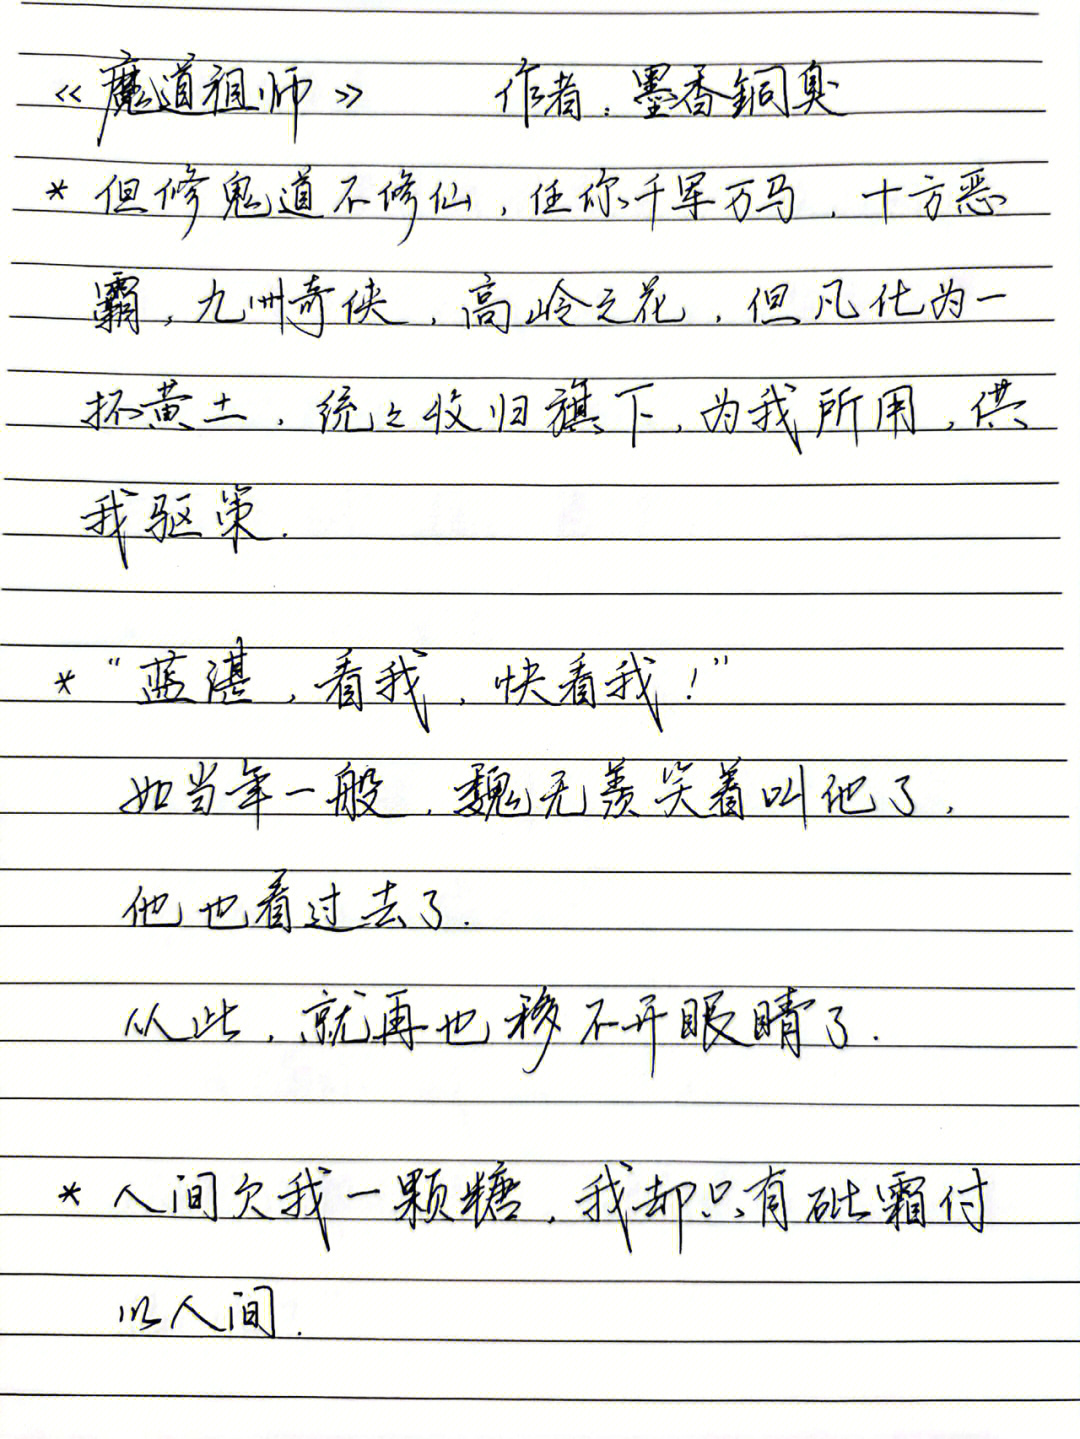 《魔道祖师》 作者：墨香銅臭
* 但修鬼道不修仙，任你千军万马，十方恶
霸，九州奇侠，高岭之花，但凡化为一
抔黄土，统之收归旗下，为我所用，供
我驱策.
* “蓝湛，看我，快看我！”
如当年一般，魏无羡笑着叫他了，
他也看过去了.
从此，就再也移不开眼睛了.
* 人间欠我一颗糖，我却只有砒霜付
以人间.